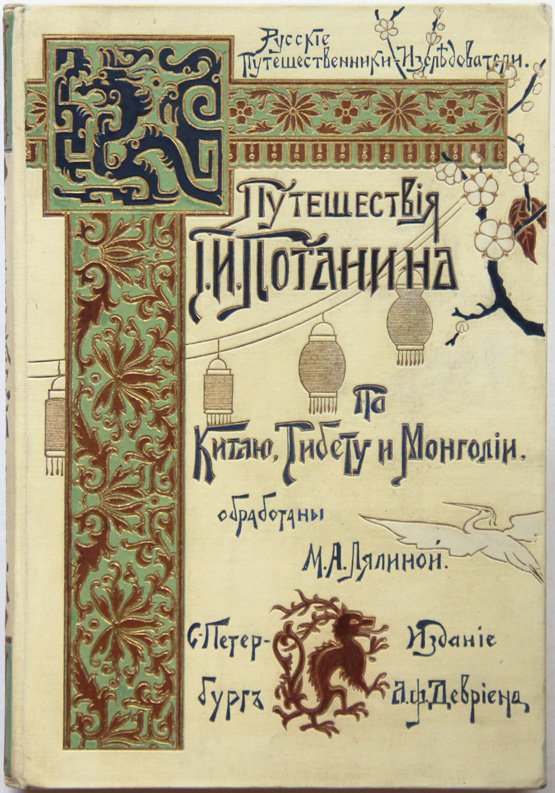 Русскіе
Путешественники-Изслѣдователи.
Путешествія
Г.И.Потанина
По
Китаю, Тибету и Монголіи.
обработаны
М.А.Лялиной.
С-Петер-
бургъ
Изданіе
А.Ф.Девріена